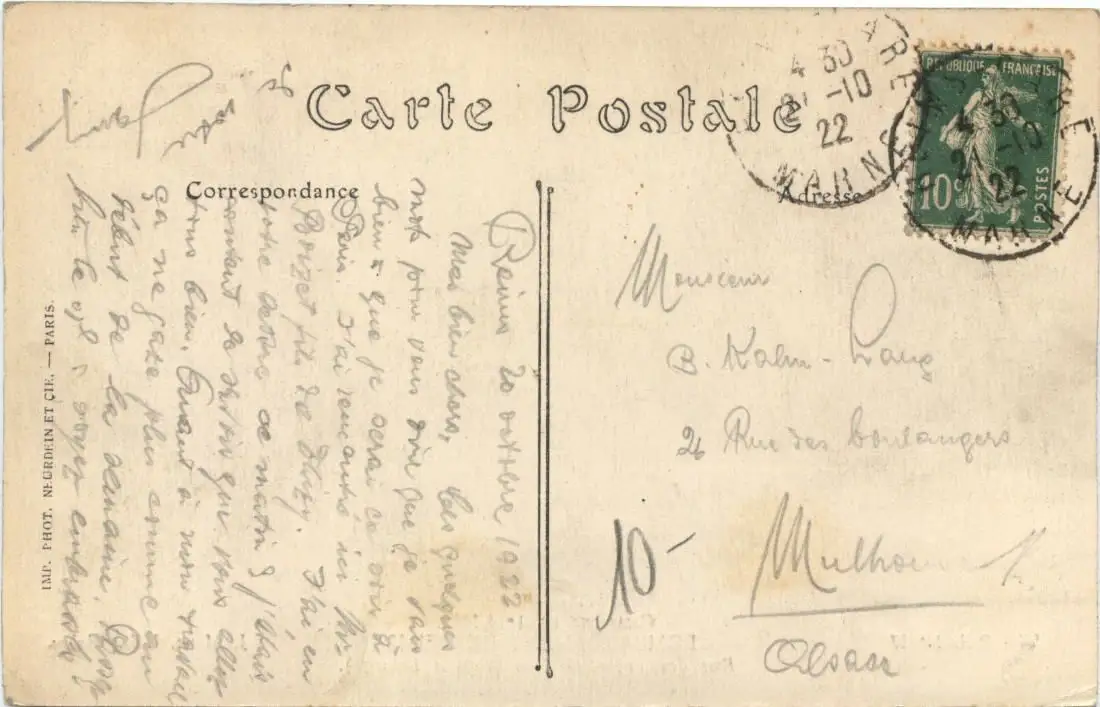 Carte Postale
Correspondance
Adresse
REIMS GARE
4 30
21 -10
22
MARNE
REIMS GARE
4 30
21 -10
22
MARNE
RÉPUBLIQUE FRANÇAISE
10c
POSTES
Reims 20 octobre 1922.
Mes bien chers, Ces quelques
mots pour vous dire que je vais
bien & que je serai ce soir à
Paris. J'ai rencontré ici Mr
fils de J'ai eu
votre lettre ce matin & j'étais
content de savoir que vous allez
tous bien. Quant à mon travail
ça ne gaze plus comme au
début de la semaine.
soyez embrassés
Monsieur
B. Kahn - Lang
26 Rue des boulangers
Mulhouse
Alsace
10 -
IMP. PHOT. NEURDEIN ET CIE. — PARIS.